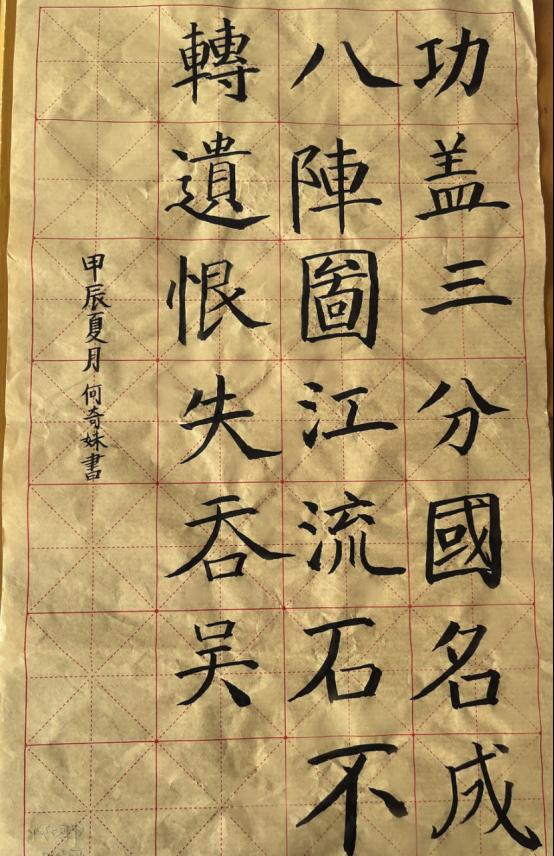 功盖三分國名成
八陣圖江流石不
轉遺恨失吞吴
甲辰夏月何奇妹書